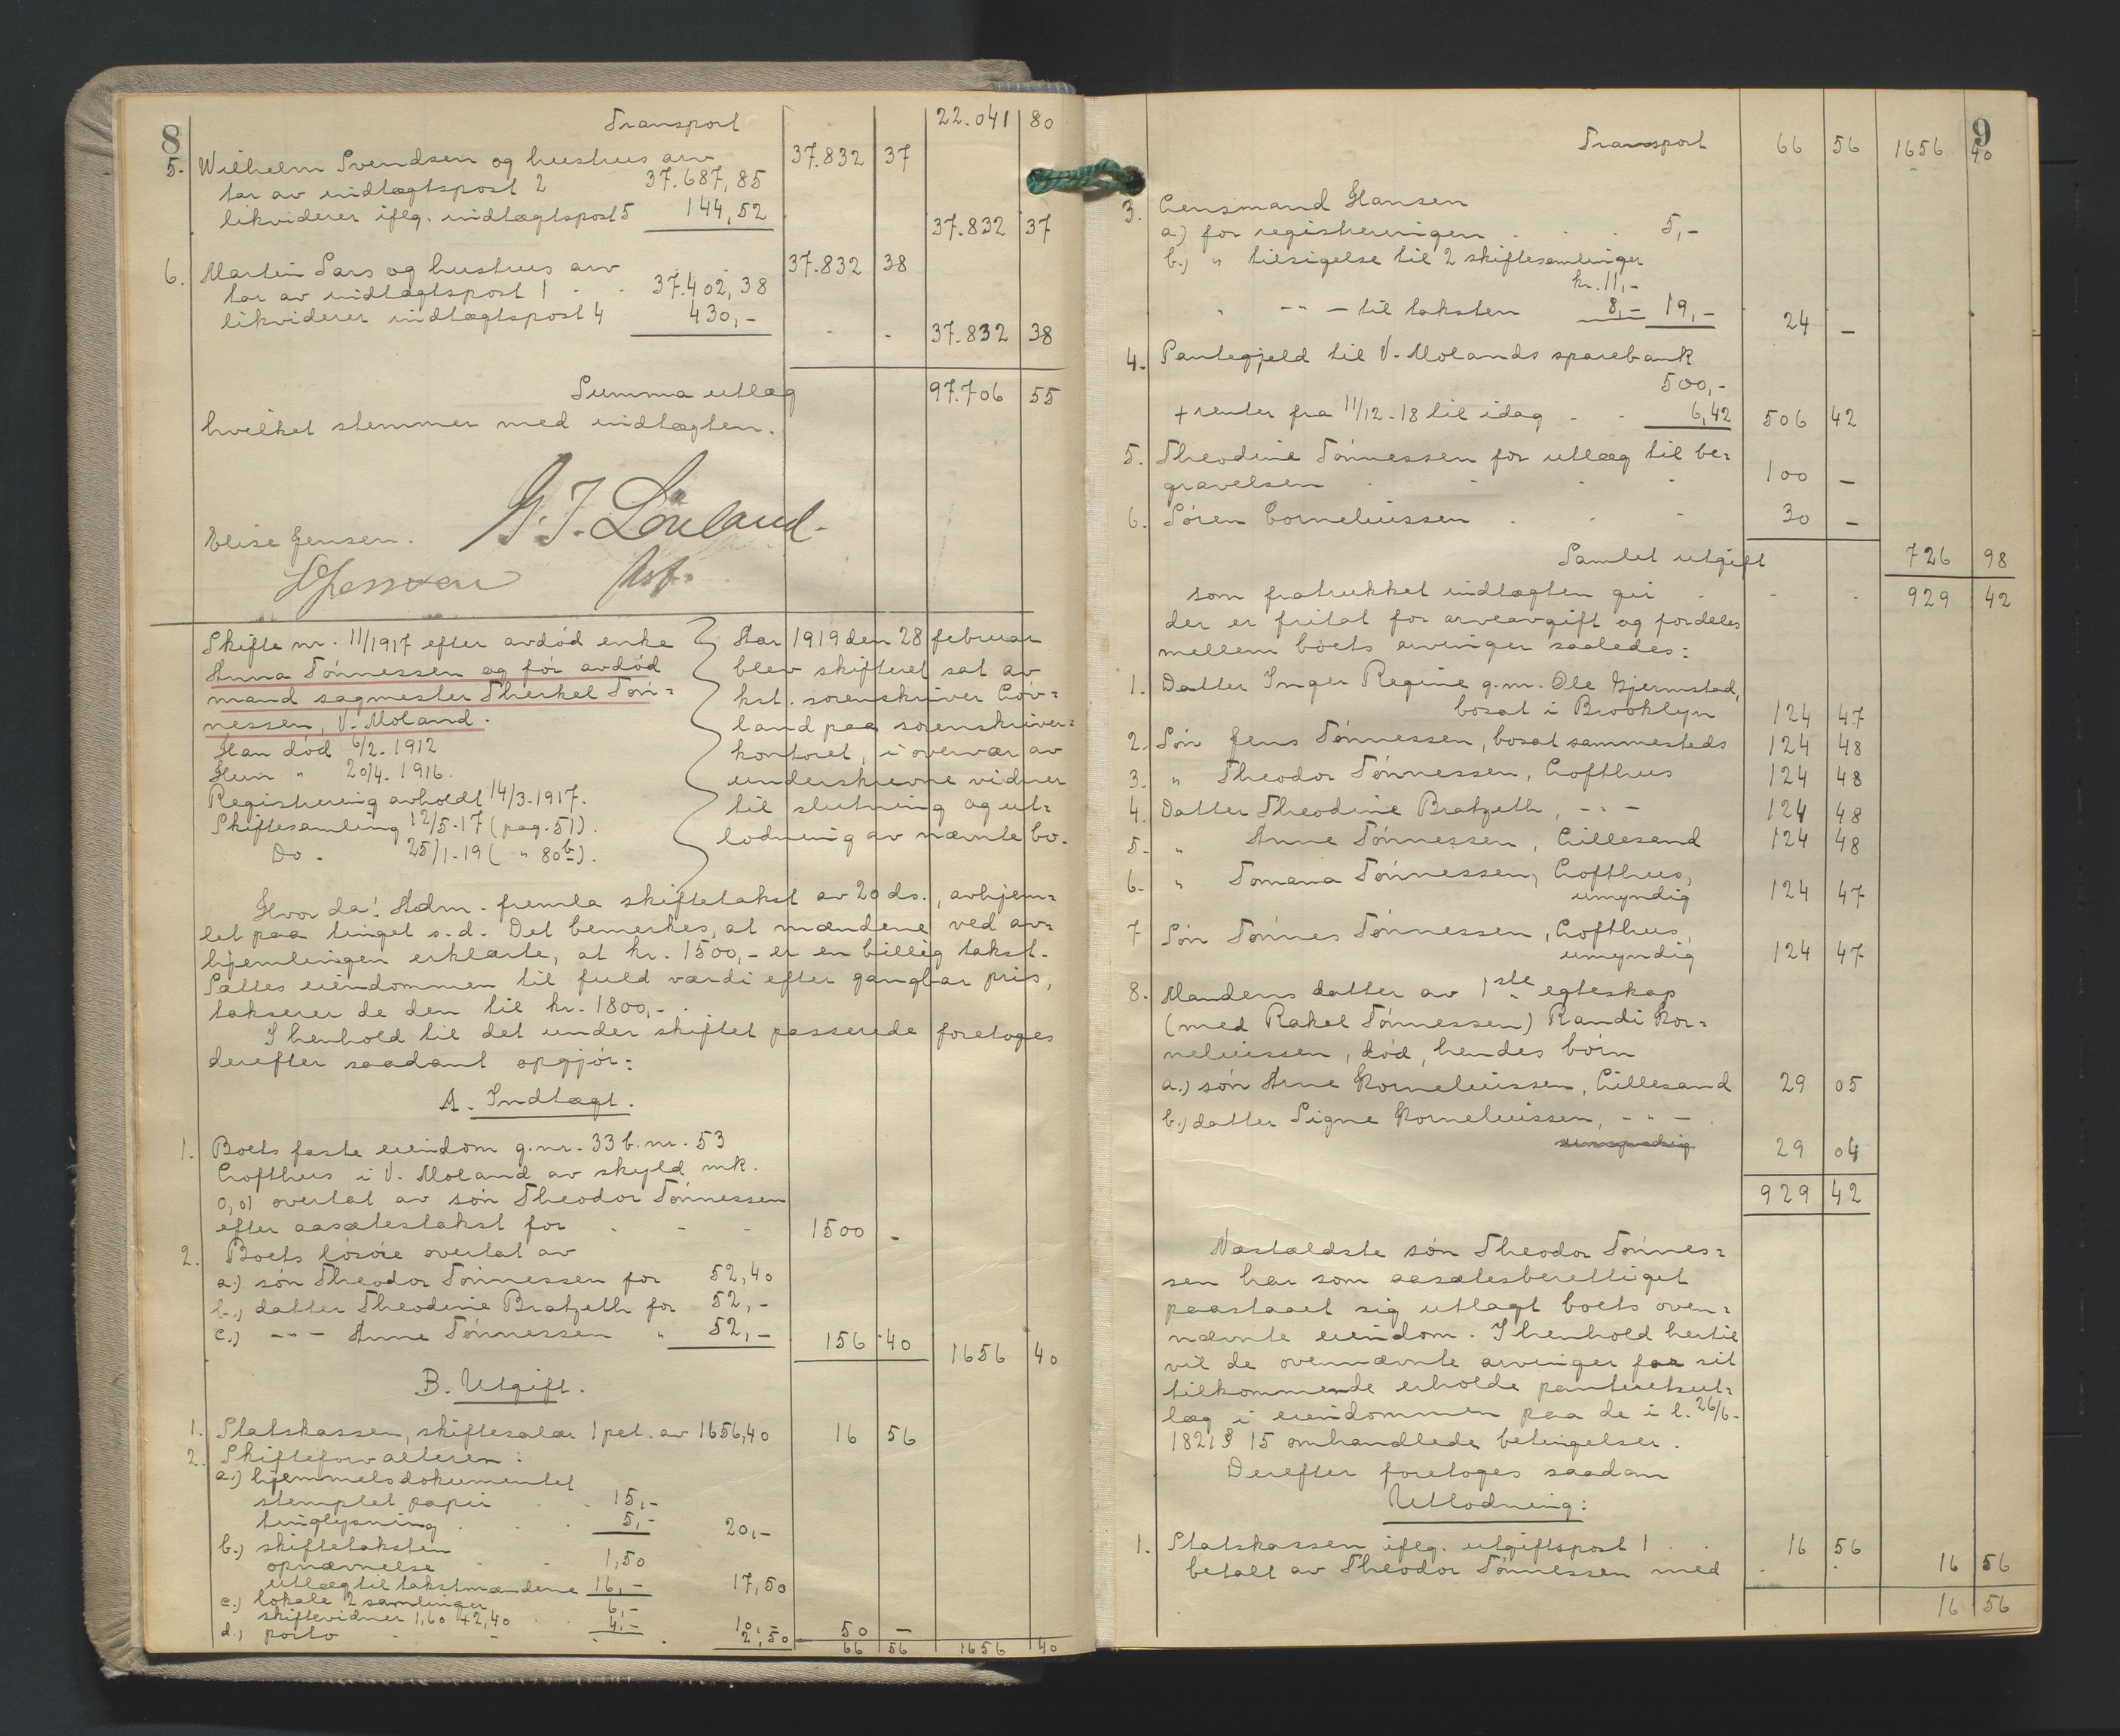 8
Transport 22.041 80
5. Wilhelm Svendsen og hustrus arv 37.832 37
tar av indtægtspost 2 37.687,85
likviderer iflg. indtægtspost 5 144,52 37.832 37
6. Martin Lars og hustrus arv 37.832 38
tar av indtægtspost 1 37.402,38
likviderer indtægtspost 4 430,- 37.832 38
Summa utlæg 97.706 55
hvilket stemmer med indtægten.
G. T. Løvland.
Elise Jensen.
Skifte nr. 11/1917 efter avdød enke
Anna Tønnessen og før avdød
mand sagmester Therkel Tøn-
nessen, V. Moland.
Han død 6/2-1912
Hun " 20/4-1916.
Registrering avholdt 14/3-1917.
Skiftesamling 12/5-17 (pag. 51).
Do. 25/1-19 ( " 80b).
Aar 1919 den 28 februar
blev skifteret sat av
kst. sorenskriver Løv-
land paa sorenskriver-
kontoret, i overvær av
underskrevne vidner
til slutning og ut-
lodning av nævnte bo.
Hvor da: Adm. fremla skiftetakst av 20 ds., avhjem-
let paa tinget s.d. Det bemerkes, at mændene ved av-
hjemlingen erklærte, at kr. 1500,- er en billig takst.
Sættes eiendommen til fuld værdi efter gangbar pris,
takserer de den til kr. 1800,-.
I henhold til det under skiftet passerede foretoges
derefter saadant opgjør:
A. Indtægt.
1. Boets faste eiendom g.nr. 33 b.nr. 53
Lofthus i V. Moland av skyld mk.
0,01 overtat av søn Theodor Tønnessen
efter aasætestakst for 1500 -
2. Boets løsøre overtat av
a.) søn Theodor Tønnessen for 52,40
b.) datter Theodine Bratzeth for 52,-
c.) --- Anne Tønnessen " 52,- 156 40 1656 40
B. Utgift.
1. Statskassen, skiftesalær 1 pct. av 1656,40 16 56
2. Skifteforvalteren:
a.) hjemmelsdokumentet
stemplet papir 15,-
tinglysning 5,- 20,-
b.) skiftetaksten
opnævnelse 1,50
utlæg til takstmændene 16,- 17,50
c.) lokale 2 samlinger 6,-
skiftevidner 1,60 + 2,40 4,- 10,-
d.) porto 2,50 50 -
66 56 1656 40
9
Transport 66 56 1656 40
3. Lensmand Hansen
a.) for registreringen 5,-
b.) " tilsigelse til 2 skiftesamlinger
kr. 11,-
" -- - til taksten 8,- 19,- 24 -
4. Pantegjeld til V. Molands sparebank
500,-
+ renter fra 11/12-18 til idag 6,42 506 42
5. Theodine Tønnessen for utlæg til be-
gravelsen 100 -
6. Søren Corneliussen 30 -
Samlet utgift 726 98
som fratrukket indtægten gir 929 42
der er fritat for arveavgift og fordeles
mellem boets arvinger saaledes:
1. Datter Inger Regine g.m. Ole Gjermstad,
bosat i Brooklyn 124 47
2. Søn Jens Tønnessen, bosat sammesteds 124 48
3. " Theodor Tønnessen, Lofthus 124 48
4. Datter Theodine Bratzeth, -"- 124 48
5. " Anne Tønnessen, Lillesand 124 48
6. " Tomana Tønnessen, Lofthus,
umyndig 124 47
7 Søn Tønnes Tønnessen, Lofthus,
umyndig 124 47
8. Mandens datter av 1ste egteskap
(med Rakel Tønnessen) Randi Kor-
neliussen, død, hendes børn
a.) søn Arne Korneliussen, Lillesand 29 05
b.) datter Signe Korneliussen, -"-
umyndig 29 04
929 42
Næstældste søn Theodor Tønnes-
sen har som aasætesberettiget
paastaaet sig utlagt boets oven-
nævnte eiendom. I henhold hertil
vil de ovennævnte arvinger for sit
tilkommende erholde panteretsut-
læg i eiendommen paa de i l. 26/6-
1821 § 15 omhandlede betingelser.
Derefter foretoges saadan
Utlodning:
1. Statskassen iflg. utgiftspost 1 16 56
betalt av Theodor Tønnessen med 16 56
16 56